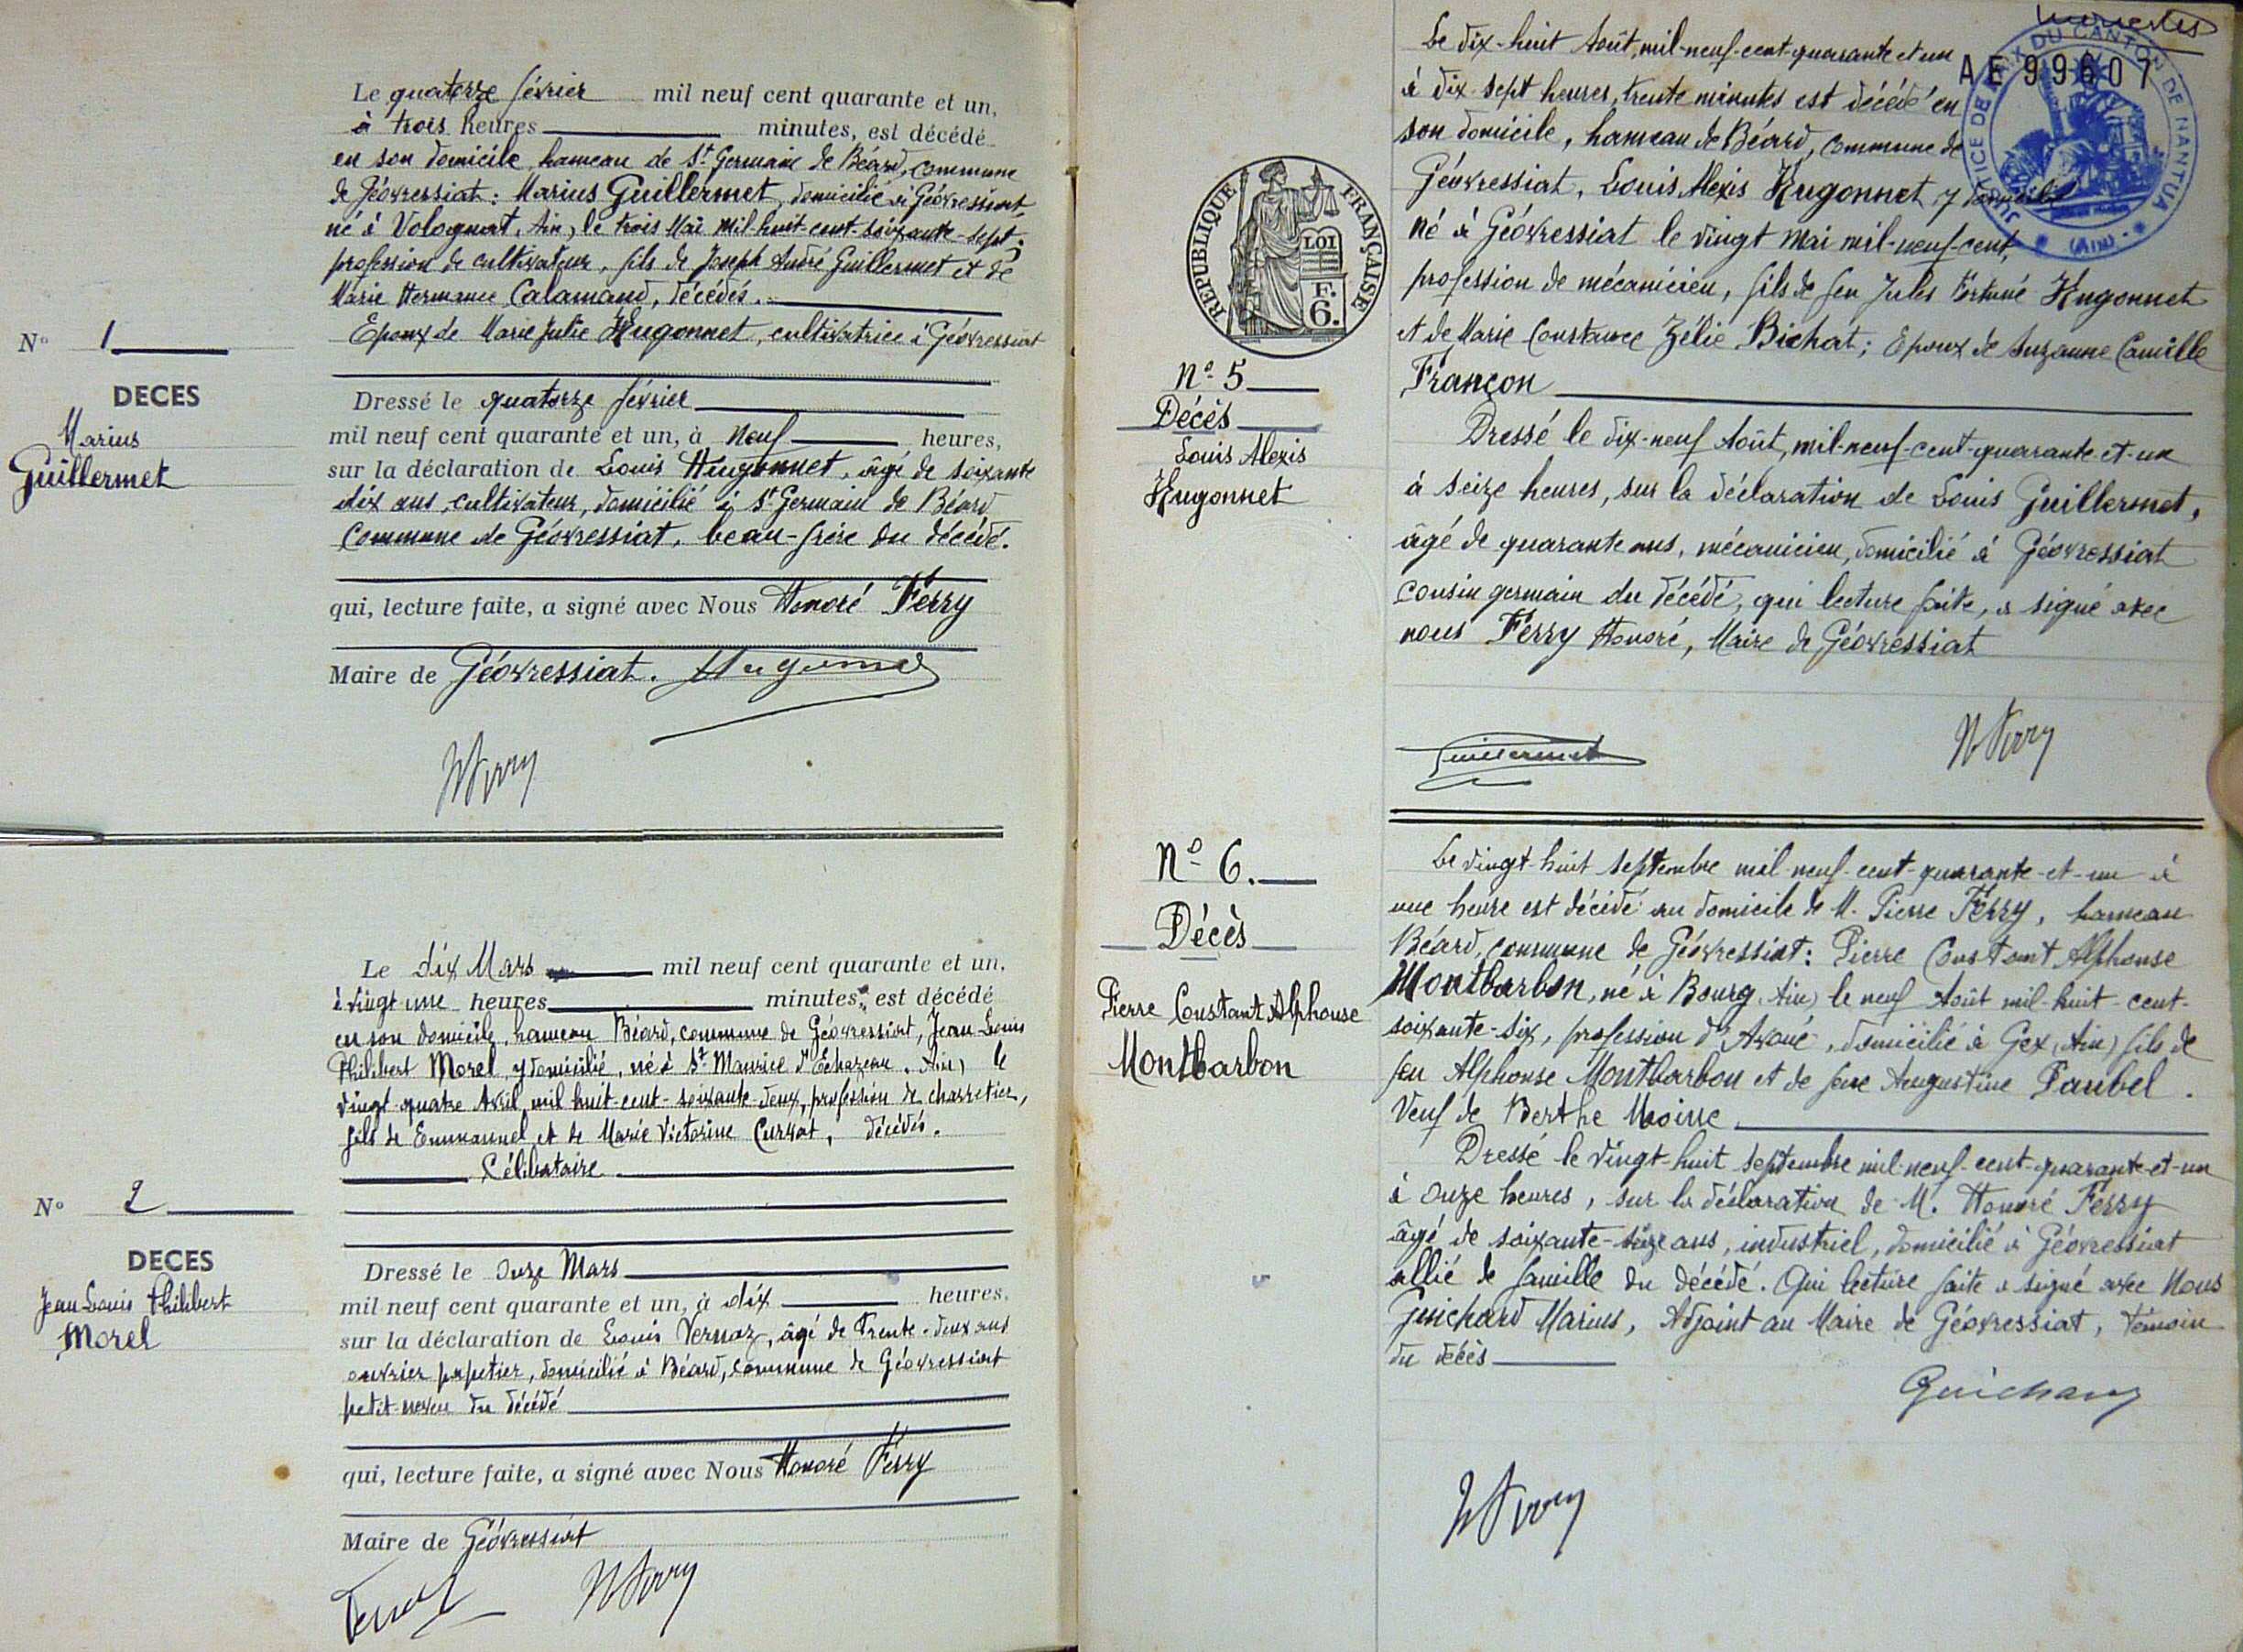 Le quatorze février mil neuf cent quarante et un,
à trois heures minutes, est décédé
en son domicile, hameau de St Germain de Béard, commune
de Géovressiat : Marius Guillermet, domicilié à Géovressiat,
né à Volognat, Ain, le trois Mai mil-huit-cent-soixante-sept,
profession de cultivateur, fils de Joseph André Guillermet et de
Marie Hermance Calamand, décédés.
Epoux de Marie Julie Hugonnet, cultivatrice à Géovressiat
No 1
DECES
Marius
Guillermet
Dressé le quatorze février
mil neuf cent quarante et un, à neuf heures,
sur la déclaration de Louis Hugonnet, âgé de soixante
dix ans, cultivateur, domicilié à St Germain de Béard
Commune de Géovressiat, beau-frère du décédé.
qui, lecture faite, a signé avec Nous Honoré Ferry
Maire de Géovressiat. Hugonnet
HFerry
Le dix Mars mil neuf cent quarante et un,
à vingt-une heures minutes, est décédé
en son domicile, hameau Béard, commune de Géovressiat, Jean Louis
Philibert Morel, y domicilié, né à St Maurice d'Echazeau, Ain, le
vingt-quatre Avril mil huit-cent-soixante-deux, profession de charretier,
fils de Emmanuel et de Marie Victorine Curvat, décédés.
Célibataire
No 2
DECES
Jean Louis Philibert
Morel
Dressé le onze Mars
mil neuf cent quarante et un, à dix heures,
sur la déclaration de Louis Vernaz, âgé de trente-deux ans
ouvrier papetier, domicilié à Béard, commune de Géovressiat
petit-neveu du décédé
qui, lecture faite, a signé avec Nous Honoré Ferry
Maire de Géovressiat
HFerry
AE 99607
JUSTICE DE PAIX DU CANTON DE NANTUA
(Ain)
REPUBLIQUE FRANÇAISE
LOI
F.
6.
No 5
Décès
Louis Alexis
Hugonnet
Le dix-huit Août, mil-neuf-cent-quarante et un
à dix-sept heures, trente minutes est décédé en
son domicile, hameau de Béard, commune de
Géovressiat, Louis Alexis Hugonnet y domicilié
né à Géovressiat le vingt mai mil-neuf-cent,
profession de mécanicien, fils de feu Jules Fortuné Hugonnet
et de Marie Constance Zélie Bichat ; Epoux de Suzanne Camille
Françon
Dressé le dix-neuf Août, mil-neuf-cent-quarante-et-un
à seize heures, sur la déclaration de Louis Guillermet,
âgé de quarante ans, mécanicien, domicilié à Géovressiat
cousin germain du décédé, qui lecture faite, a signé avec
nous Ferry Honoré, Maire de Géovressiat
Guillermet
HFerry
No 6.
Décès
Pierre Constant Alphonse
Montbarbon
Le vingt-huit septembre mil-neuf-cent-quarante-et-un à
une heure est décédé au domicile de M. Pierre Ferry, hameau
Béard, commune de Géovressiat : Pierre Constant Alphonse
Montbarbon, né à Bourg, Ain, le neuf Août mil-huit-cent-
soixante-six, profession d'Avoué, domicilié à Gex, (Ain) fils de
feu Alphonse Montbarbon et de feue Augustine Paubel.
Veuf de Berthe Moinne.
Dressé le vingt-huit septembre mil-neuf-cent-quarante-et-un
à onze heures, sur la déclaration de M. Honoré Ferry
âgé de soixante-seize ans, industriel, domicilié à Géovressiat
allié de famille du décédé. Qui lecture faite a signé avec Nous
Guichard Marius, Adjoint au Maire de Géovressiat, témoin
du décès
Guichard
HFerry